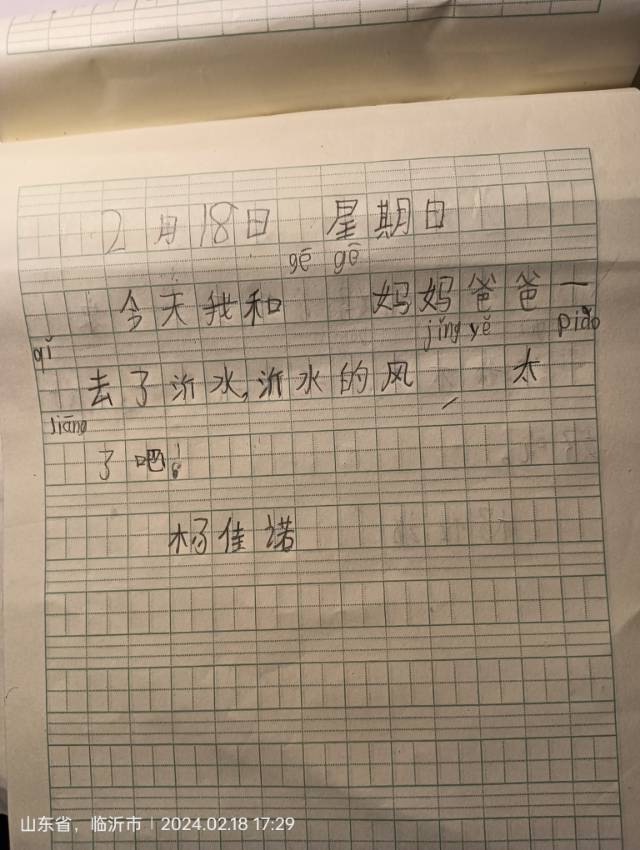 2月18日 星期日
gē gē
今天我和 妈妈爸爸一
qǐ jǐng yě piào
去了沂水,沂水的风 太
liàng
了吧!
杨佳诺
山东省，临沂市 | 2024.02.18 17:29